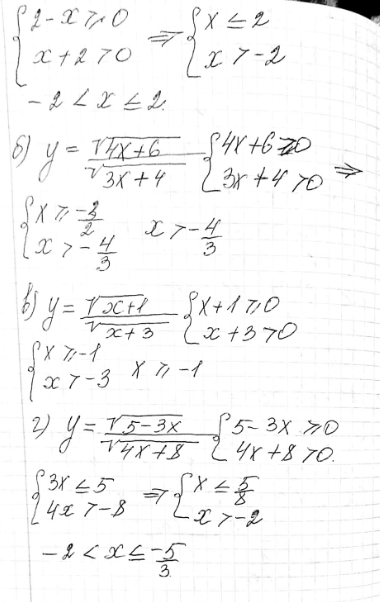 {2-x≥0 ⇒ {x≤2
{x+2>0 {x>-2
-2<x≤2.
б) y = √(4x+6)/√(3x+4) {4x+6≥0
{3x+4>0 ⇒
{x≥-3/2
{x>-4/3 x>-4/3
в) y = √(x+1)/√(x+3) {x+1≥0
{x+3>0
{x≥-1
{x>-3 x≥-1
г) y = √(5-3x)/√(4x+8) {5-3x≥0
{4x+8>0.
{3x≤5 ⇒ {x≤5/8
{4x>-8 {x>-2
-2<x≤-5/3